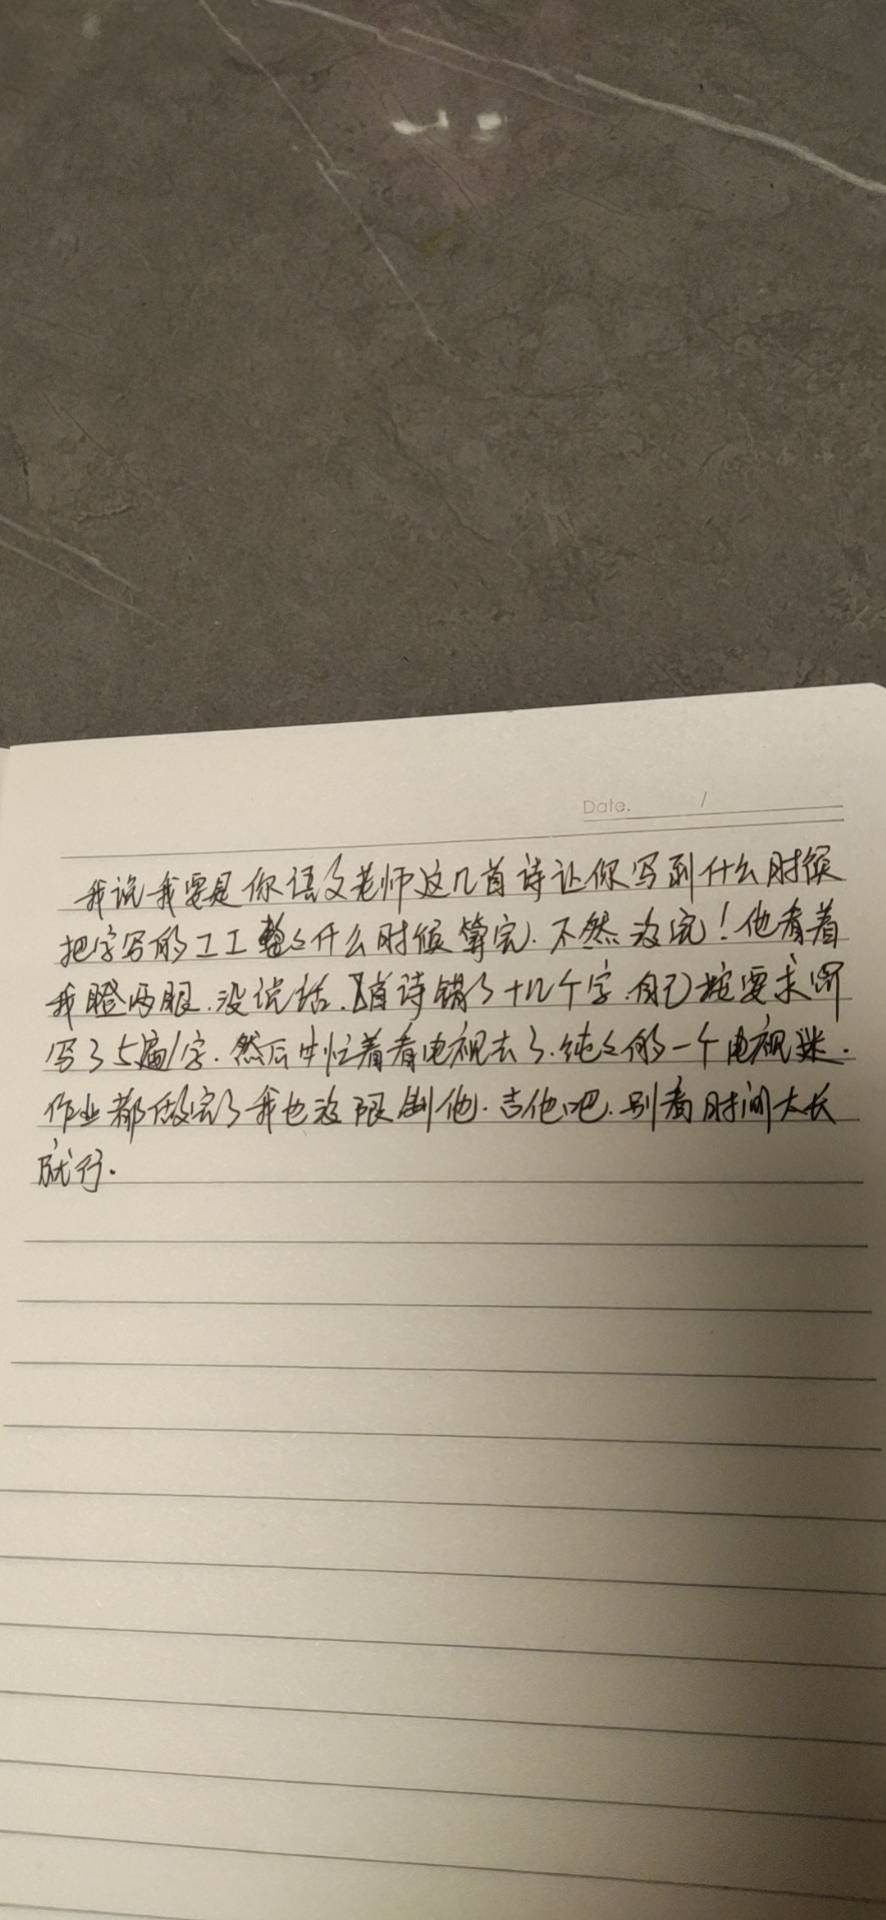 Date. /
我说我要是你语文老师这几首诗让你写到什么时候
把字写的工工整整什么时候算完.不然没完!他看着
我瞪两眼.没说话.首诗错了十几个字.自己按要求
写了5遍/字.然后忙着看电视去了.纯纯的一个电视迷.
作业都做完了我也没限制他.去他吧.别看时间太长
就行.